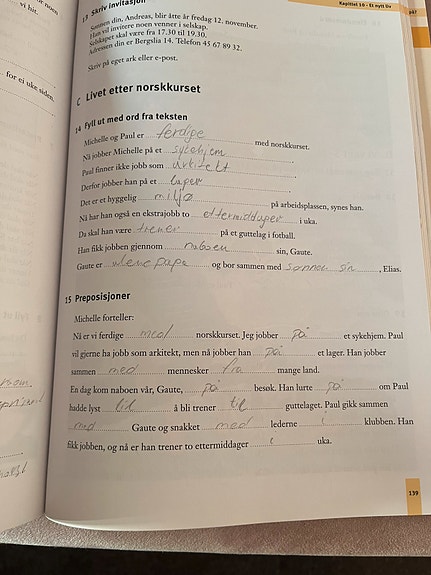 Kapittel 10 – Et nytt liv
vi hit.
for ei uke siden.
13 Skriv invitasjon
Sønnen din, Andreas, blir åtte år fredag 12. november.
Han vil invitere noen venner i selskap.
Selskapet skal være fra 17.30 til 19.30.
Adressen din er Bergslia 14. Telefon 45 67 89 32.
Skriv på eget ark eller e-post.
C Livet etter norskkurset
14 Fyll ut med ord fra teksten
Michelle og Paul er ferdige med norskkurset.
Nå jobber Michelle på et sykehjem.
Paul finner ikke jobb som arkitekt.
Derfor jobber han på et lager.
Det er et hyggelig miljø på arbeidsplassen, synes han.
Nå har han også en ekstrajobb to ettermiddager i uka.
Da skal han være trener på et guttelag i fotball.
Han fikk jobben gjennom naboen sin, Gaute.
Gaute er alenepapa og bor sammen med sønnen sin, Elias.
15 Preposisjoner
Michelle forteller:
Nå er vi ferdige med norskkurset. Jeg jobber på et sykehjem. Paul
vil gjerne ha jobb som arkitekt, men nå jobber han på et lager. Han jobber
sammen med mennesker fra mange land.
En dag kom naboen vår, Gaute, på besøk. Han lurte på om Paul
hadde lyst til å bli trener til guttelaget. Paul gikk sammen
med Gaute og snakket med lederne i klubben. Han
fikk jobben, og nå er han trener to ettermiddager i uka.
139